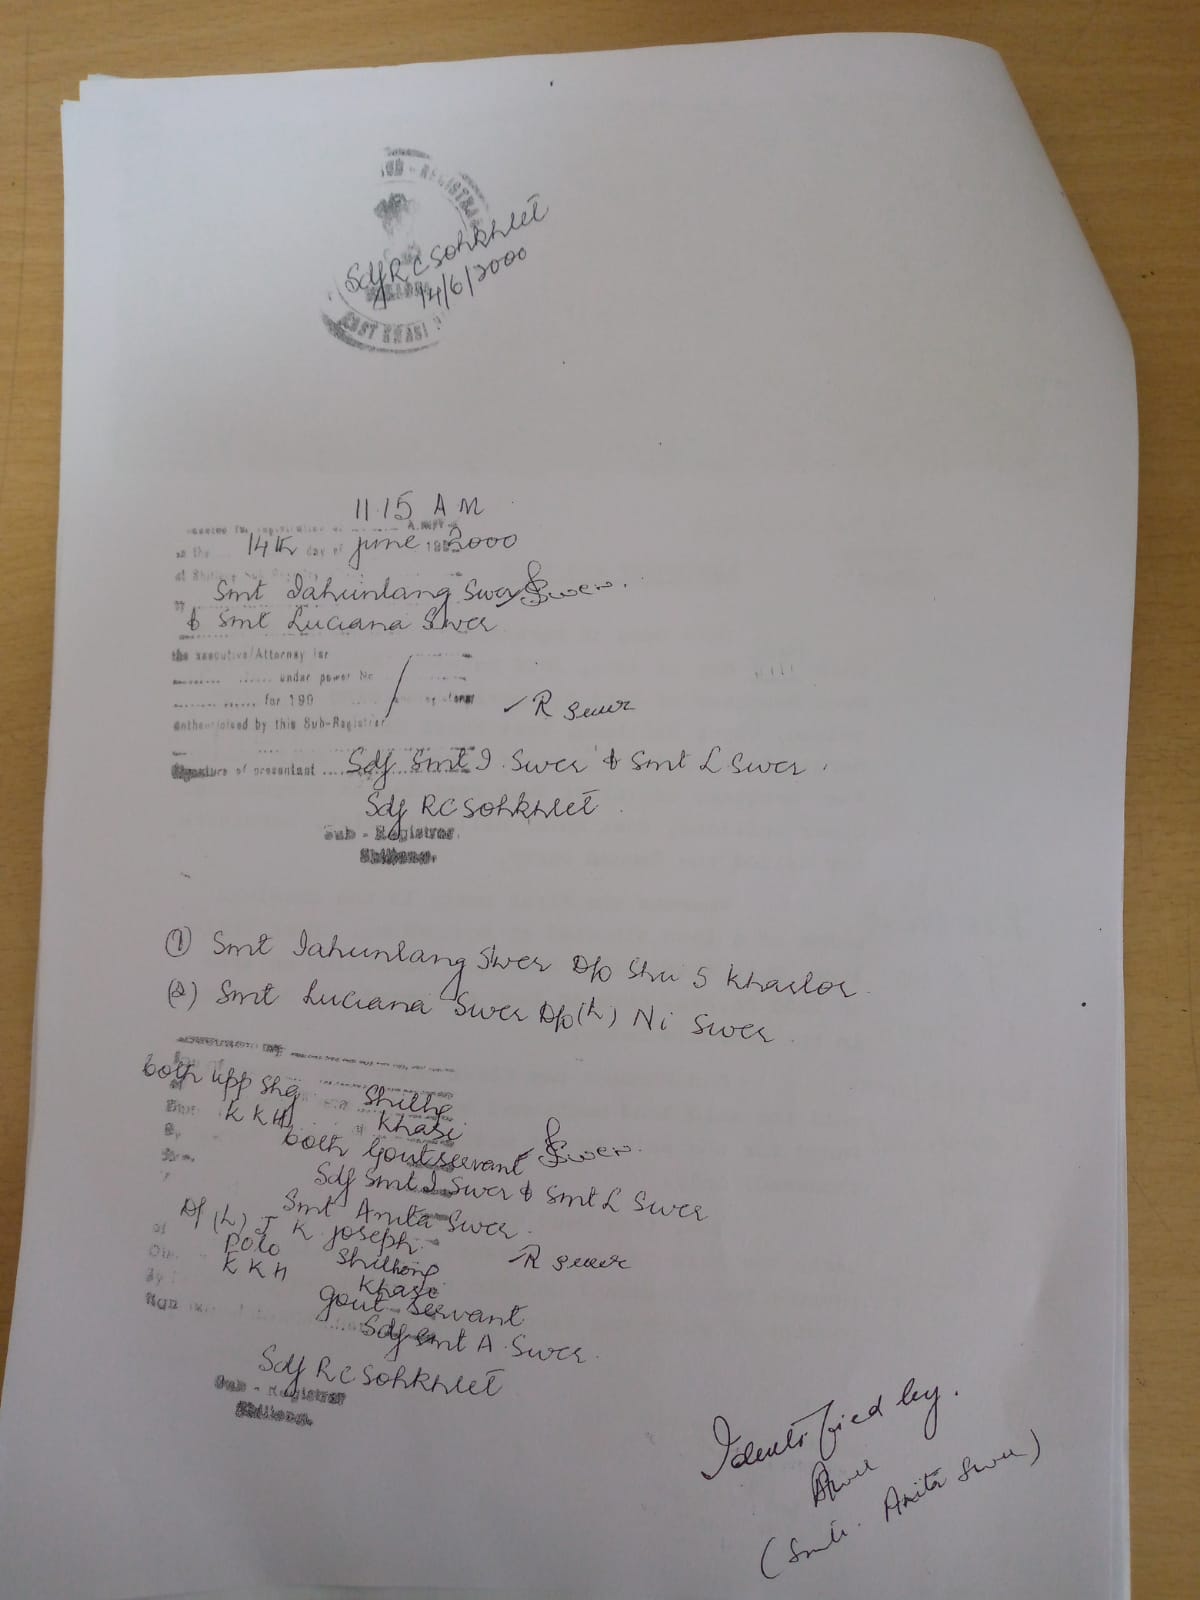 SUB - REGISTRA
Sd/ R C Sohkhlet
14/6/2000
EAST KHASI
11.15 A M
14th day of June 2000
Smt Iahunlang Swer Swer.
& Smt Luciana Swer
the executive/Attorney for
under power No
for 190
by this Sub-Registrar
R Swer
Signature of presentant Sd/ Smt I. Swer & Smt L Swer.
Sd/ RC Sohkhlet
Sub - Registrar.
Shillong.
(1) Smt Iahunlang Swer D/o Shri S Kharlor
(2) Smt Luciana Swer D/o (L) Ni Swer
both Upp Shg Shillg
K K H Khasi
both Govt servant Swer.
Sd/ Smt I Swer & Smt L Swer
Smt Anita Swer.
D/ (L) J K Joseph.
Polo Shillong R Swer
K K H Khasi
Govt servant
Sd/ Smt A. Swer.
Sd/ R C Sohkhlet
Sub - Registrar
Shillong.
Identified by.
(Smti. Anita Swer)